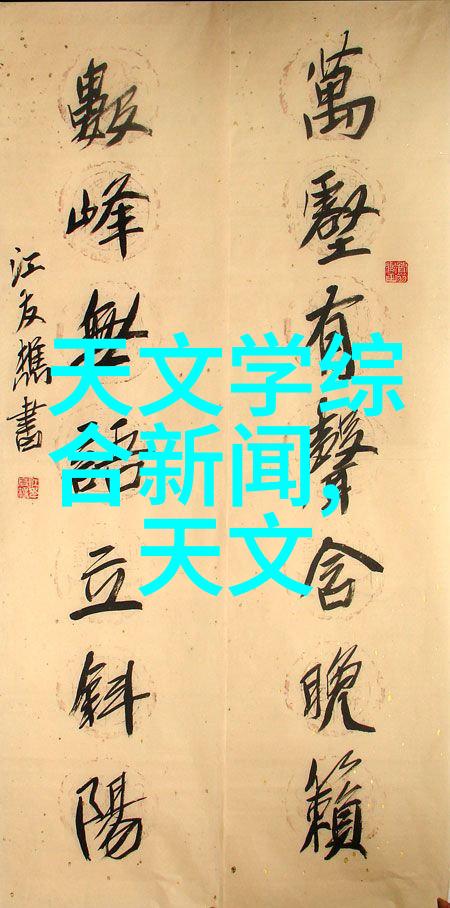 萬壑有聲含晚籟
數峰無語立斜陽
江友樵書
天文学综
合新闻,
天文